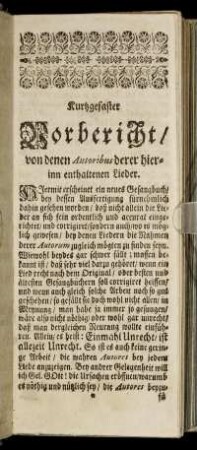 Kurtzgefaßter
Vorbericht/
von denen Autoribus derer hier-
inn enthaltenen Lieder.
Hiermit erscheinet ein neues Gesangbuch/
bey dessen Ausfertigung fürnehmlich
dahin gesehen worden/ daß nicht allein die Lie-
der an sich fein ordentlich und accurat einge-
richtet/ und corrigiret/ sondern auch/ wo es mög-
lich gewesen/ bey denen Liedern die Nahmen
derer Autorum zugleich mögten zu finden seyn.
Wiewohl beydes gar schwer fält: massen be-
kannt ist/ daß sehr viel darzu gehöret/ wenn ein
Lied recht nach dem Original/ oder besten und
ältesten Gesangbüchern soll corrigiret heissen/
und wenn auch gleich solche Arbeit noch so gut
geschehen/ so gefällt sie doch wohl nicht allen/ in
Meynung/ man habe ja immer so gesungen/
wäre also nicht nöthig/ oder wohl gar unrecht/
daß man dergleichen Neuerung wollte einfüh-
ren. Allein/ es heist: Einmahl Unrecht/ ist
allezeit Unrecht. So ist es auch keine gerin-
ge Arbeit/ die wahren Autores bey jedem
Liede anzuzeigen. Bey andrer Gelegenheit will
ich Gel. GOtt! die Ursachen eröffnen/ warumb
es nöthig und nützlich sey/ die Autores beyzu-